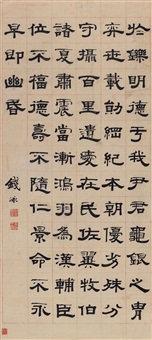 於鑠明德于我尹君龜銀之胄
弈世載勳綱紀本朝優劣殊分
守攝百里遺愛在民佐翼牧伯
諸夏肅震當漸鴻羽為漢輔臣
位不福德壽不隨仁景命不永
早即幽昏
錢泳